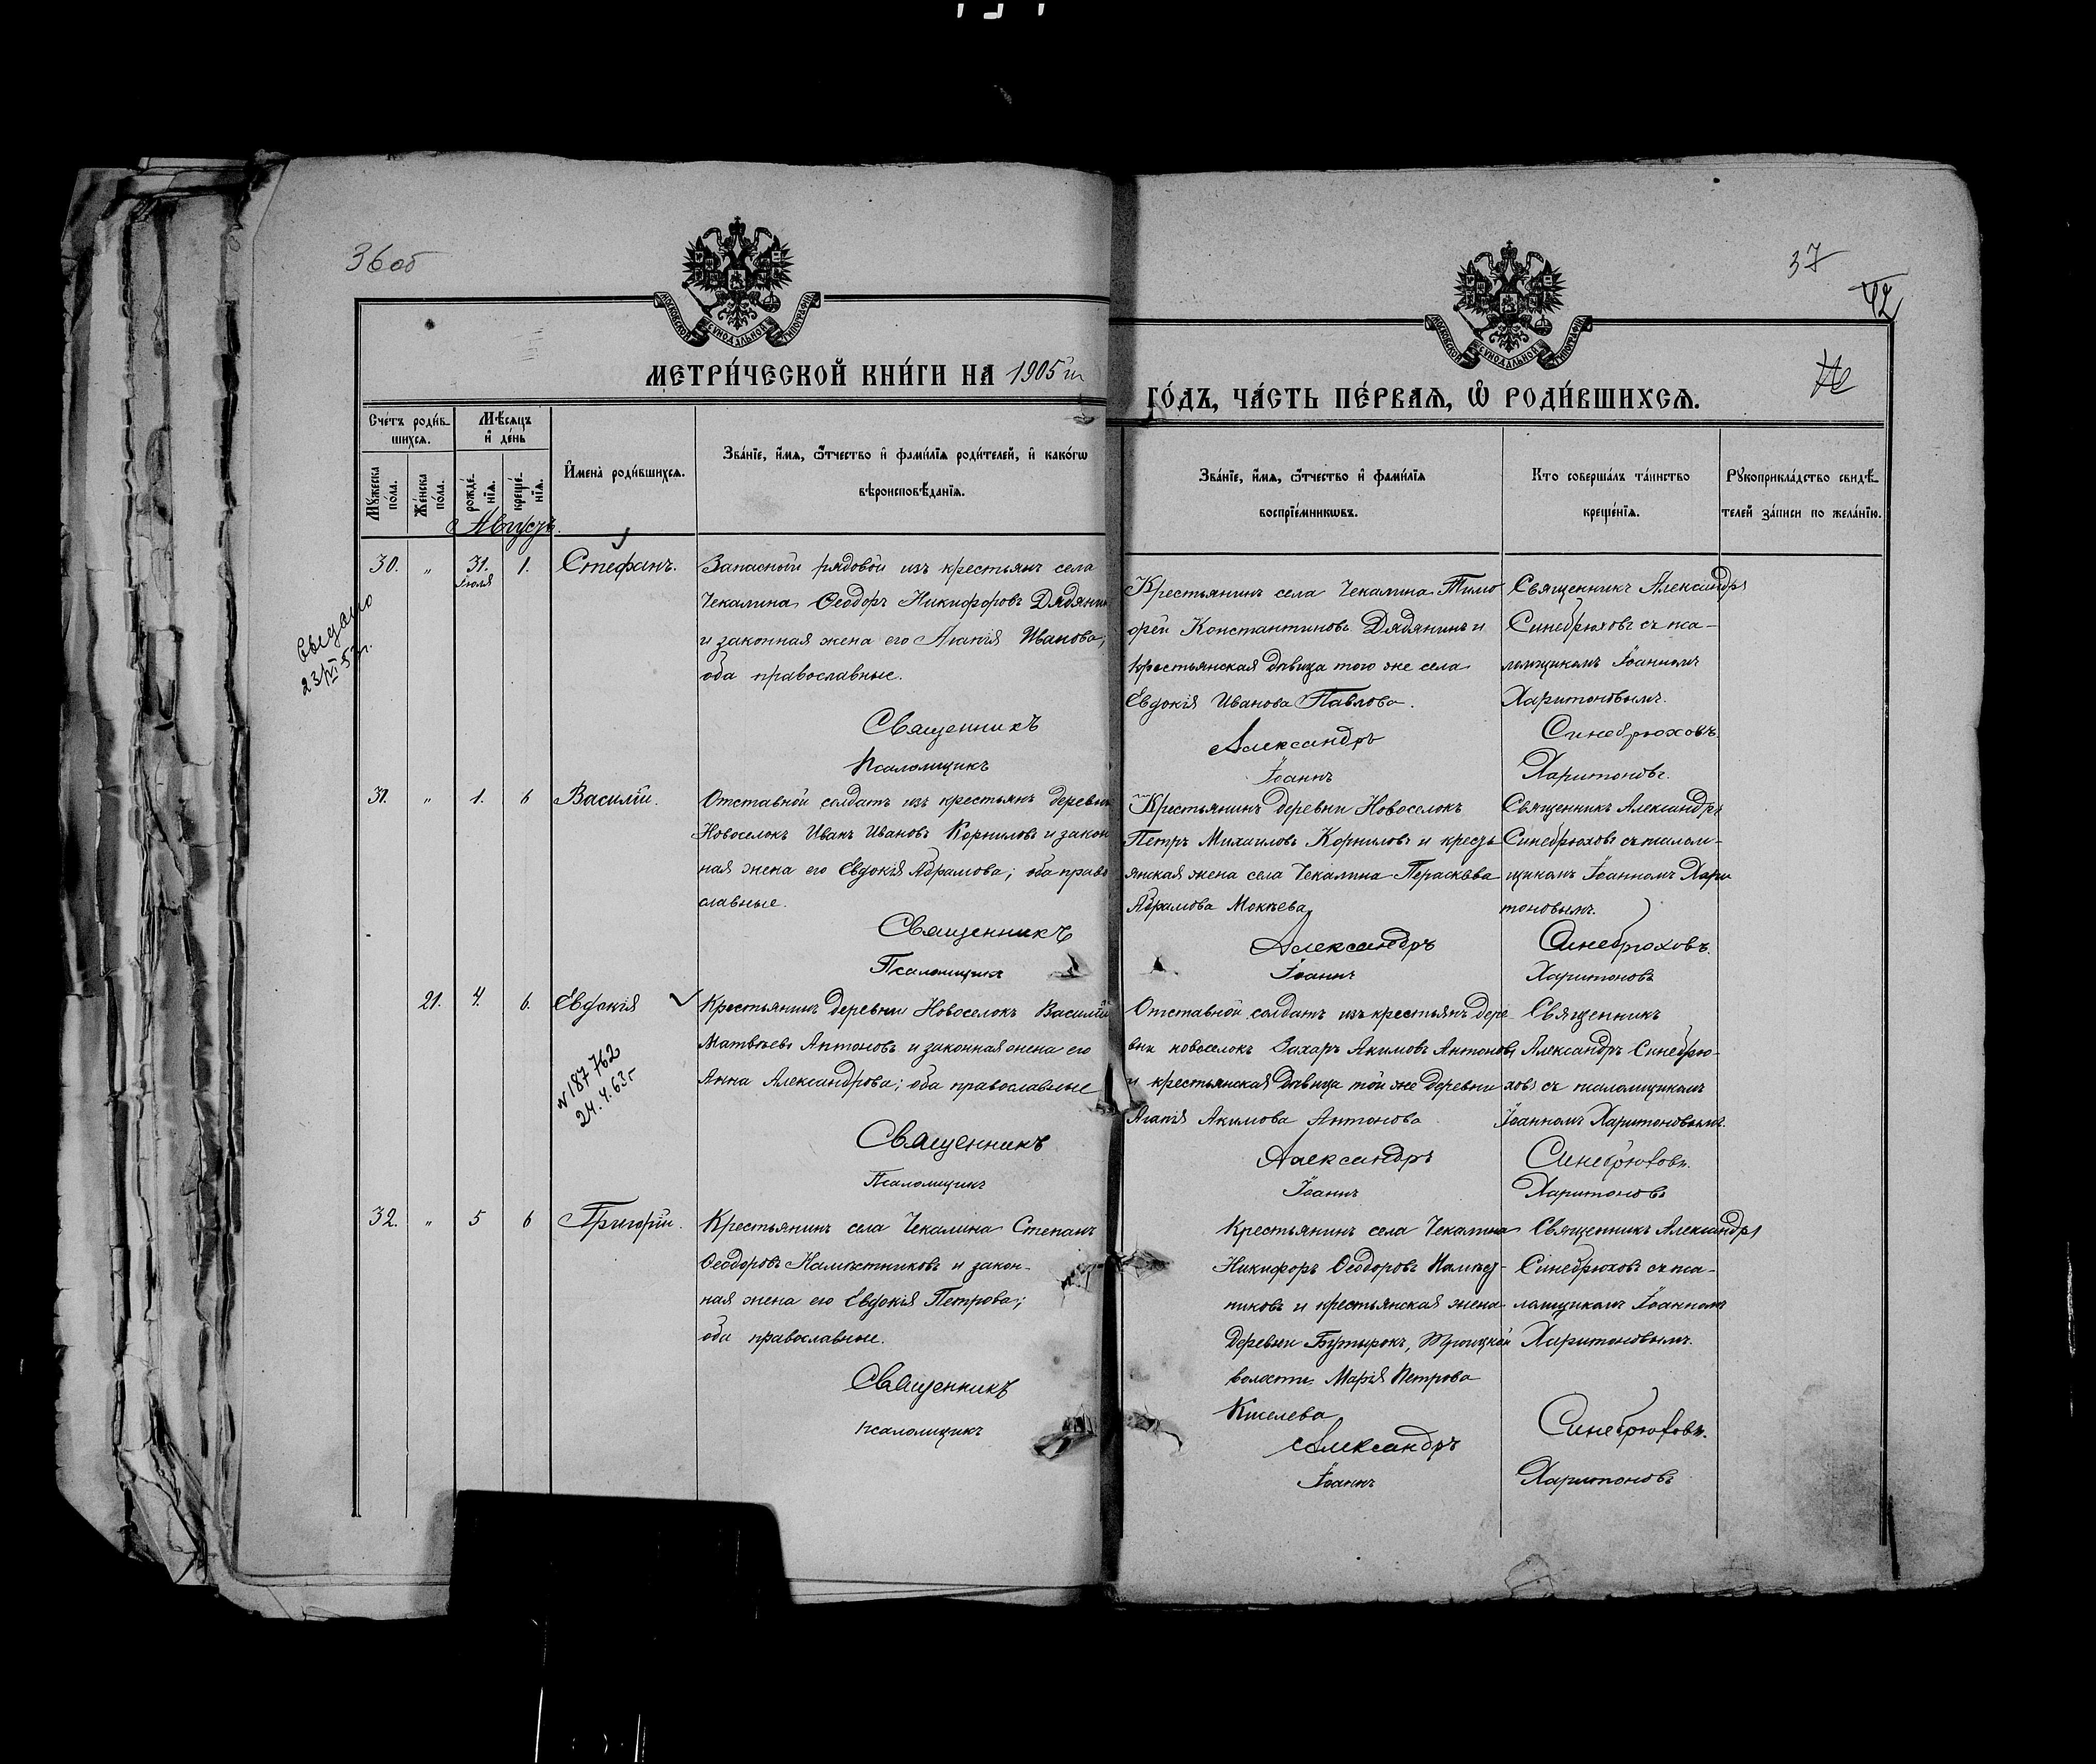 36об
37
42
МОСКОВСКОЙ СУНОДАЛЬНОЙ ТИПОГРАФІИ
МОСКОВСКОЙ СУНОДАЛЬНОЙ ТИПОГРАФІИ
МЕТРИ́ЧЕСКОЙ КНИ́ГИ НА 1905 й
ГО́ДЪ, ЧА́СТЬ ПЕ́РВАѦ, Ѡ҆ РОДИ́ВШИХСѦ.
Сче́тъ роди́в-
шихсѧ.
Мѣ́сѧцъ
и҆ де́нь
Мꙋ́жеска
по́ла.
Же́нска
по́ла.
рожде́-
нїѧ.
креще́-
нїѧ.
И҆мена̀ роди́вшихсѧ.
Зва́нїе, и҆́мѧ, ѻ҆́тчество и҆ фами́лїѧ роди́телей, и҆ како́гѡ
вѣроисповѣ́данїѧ.
Зва́нїе, и҆́мѧ, ѻ҆́тчество и҆ фами́лїѧ
воспрїе́мникѡвъ.
Кто̀ соверша́лъ та́инство
креще́нїѧ.
Рꙋкоприкла́дство свидѣ́-
телей за́писи по жела́нїю.
Августъ.
30. „ 31. Іюля 1. Стефанъ.
Запасный рядовой изъ крестьянъ села
Чекалина Ѳеодоръ Никифоровъ Дядянинъ
и законная жена его Агапія Иванова;
оба православные.
Священникъ
Псаломщикъ
Крестьянинъ села Чекалина Тимо
ѳей Константиновъ Дядянинъ и
крестьянская дѣвица того же села
Евдокія Иванова Павлова.
Александръ
Іоаннъ
Священникъ Александръ
Синебрюховъ съ пса-
ломщикомъ Іоанномъ
Харитоновымъ.
Синебрюховъ.
Харитоновъ.
выдано
23/VI-53г.
31. „ 1. 6 Василій.
Отставной солдатъ изъ крестьянъ деревни
Новоселокъ Иванъ Ивановъ Корниловъ и закон
ная жена его Евдокія Абрамова; оба право
славные.
Священникъ
Псаломщикъ
Крестьянинъ деревни Новоселокъ
Петръ Михаиловъ Корниловъ и кресть
янская жена села Чекалина Параскева
Абрамова Мокѣева
Александръ
Іоаннъ
Священникъ Александръ
Синебрюховъ съ псалом-
щикомъ Іоанномъ Хари
тоновымъ.
Синебрюховъ.
Харитоновъ
21. 4. 6. Евдокія
N 187762
24.4.63г
Крестьянинъ деревни Новоселокъ Василій
Матвѣевъ Антоновъ и законная жена его
Анна Александрова; оба православные
Священникъ
Псаломщикъ
Отставной солдатъ изъ крестьянъ дере-
вни новоселокъ Захаръ Акимовъ Антоновъ
и крестьянская дѣвица той же деревни
Агапія Акимова Антонова
Александръ
Іоаннъ
Священникъ
Александръ Синебрю-
ховъ съ псаломщикомъ
Іоанномъ Харитоновымъ.
Синебрюховъ.
Харитоновъ
32. „ 5 6 Григорій.
Крестьянинъ села Чекалина Степанъ
Ѳеодоровъ Намѣстниковъ и закон-
ная жена его Евдокія Петрова;
оба православные.
Священникъ
псаломщикъ
Крестьянинъ села Чекалина
Никифоръ Ѳеодоровъ Намѣст-
никовъ и крестьянская жена
деревни Бутырокъ, Троицкой
волости Марія Петрова
Киселева
Александръ
Іоаннъ
Священникъ Александръ
Синебрюховъ съ пса-
ломщикомъ Іоанномъ
Харитоновымъ.
Синебрюховъ.
Харитоновъ